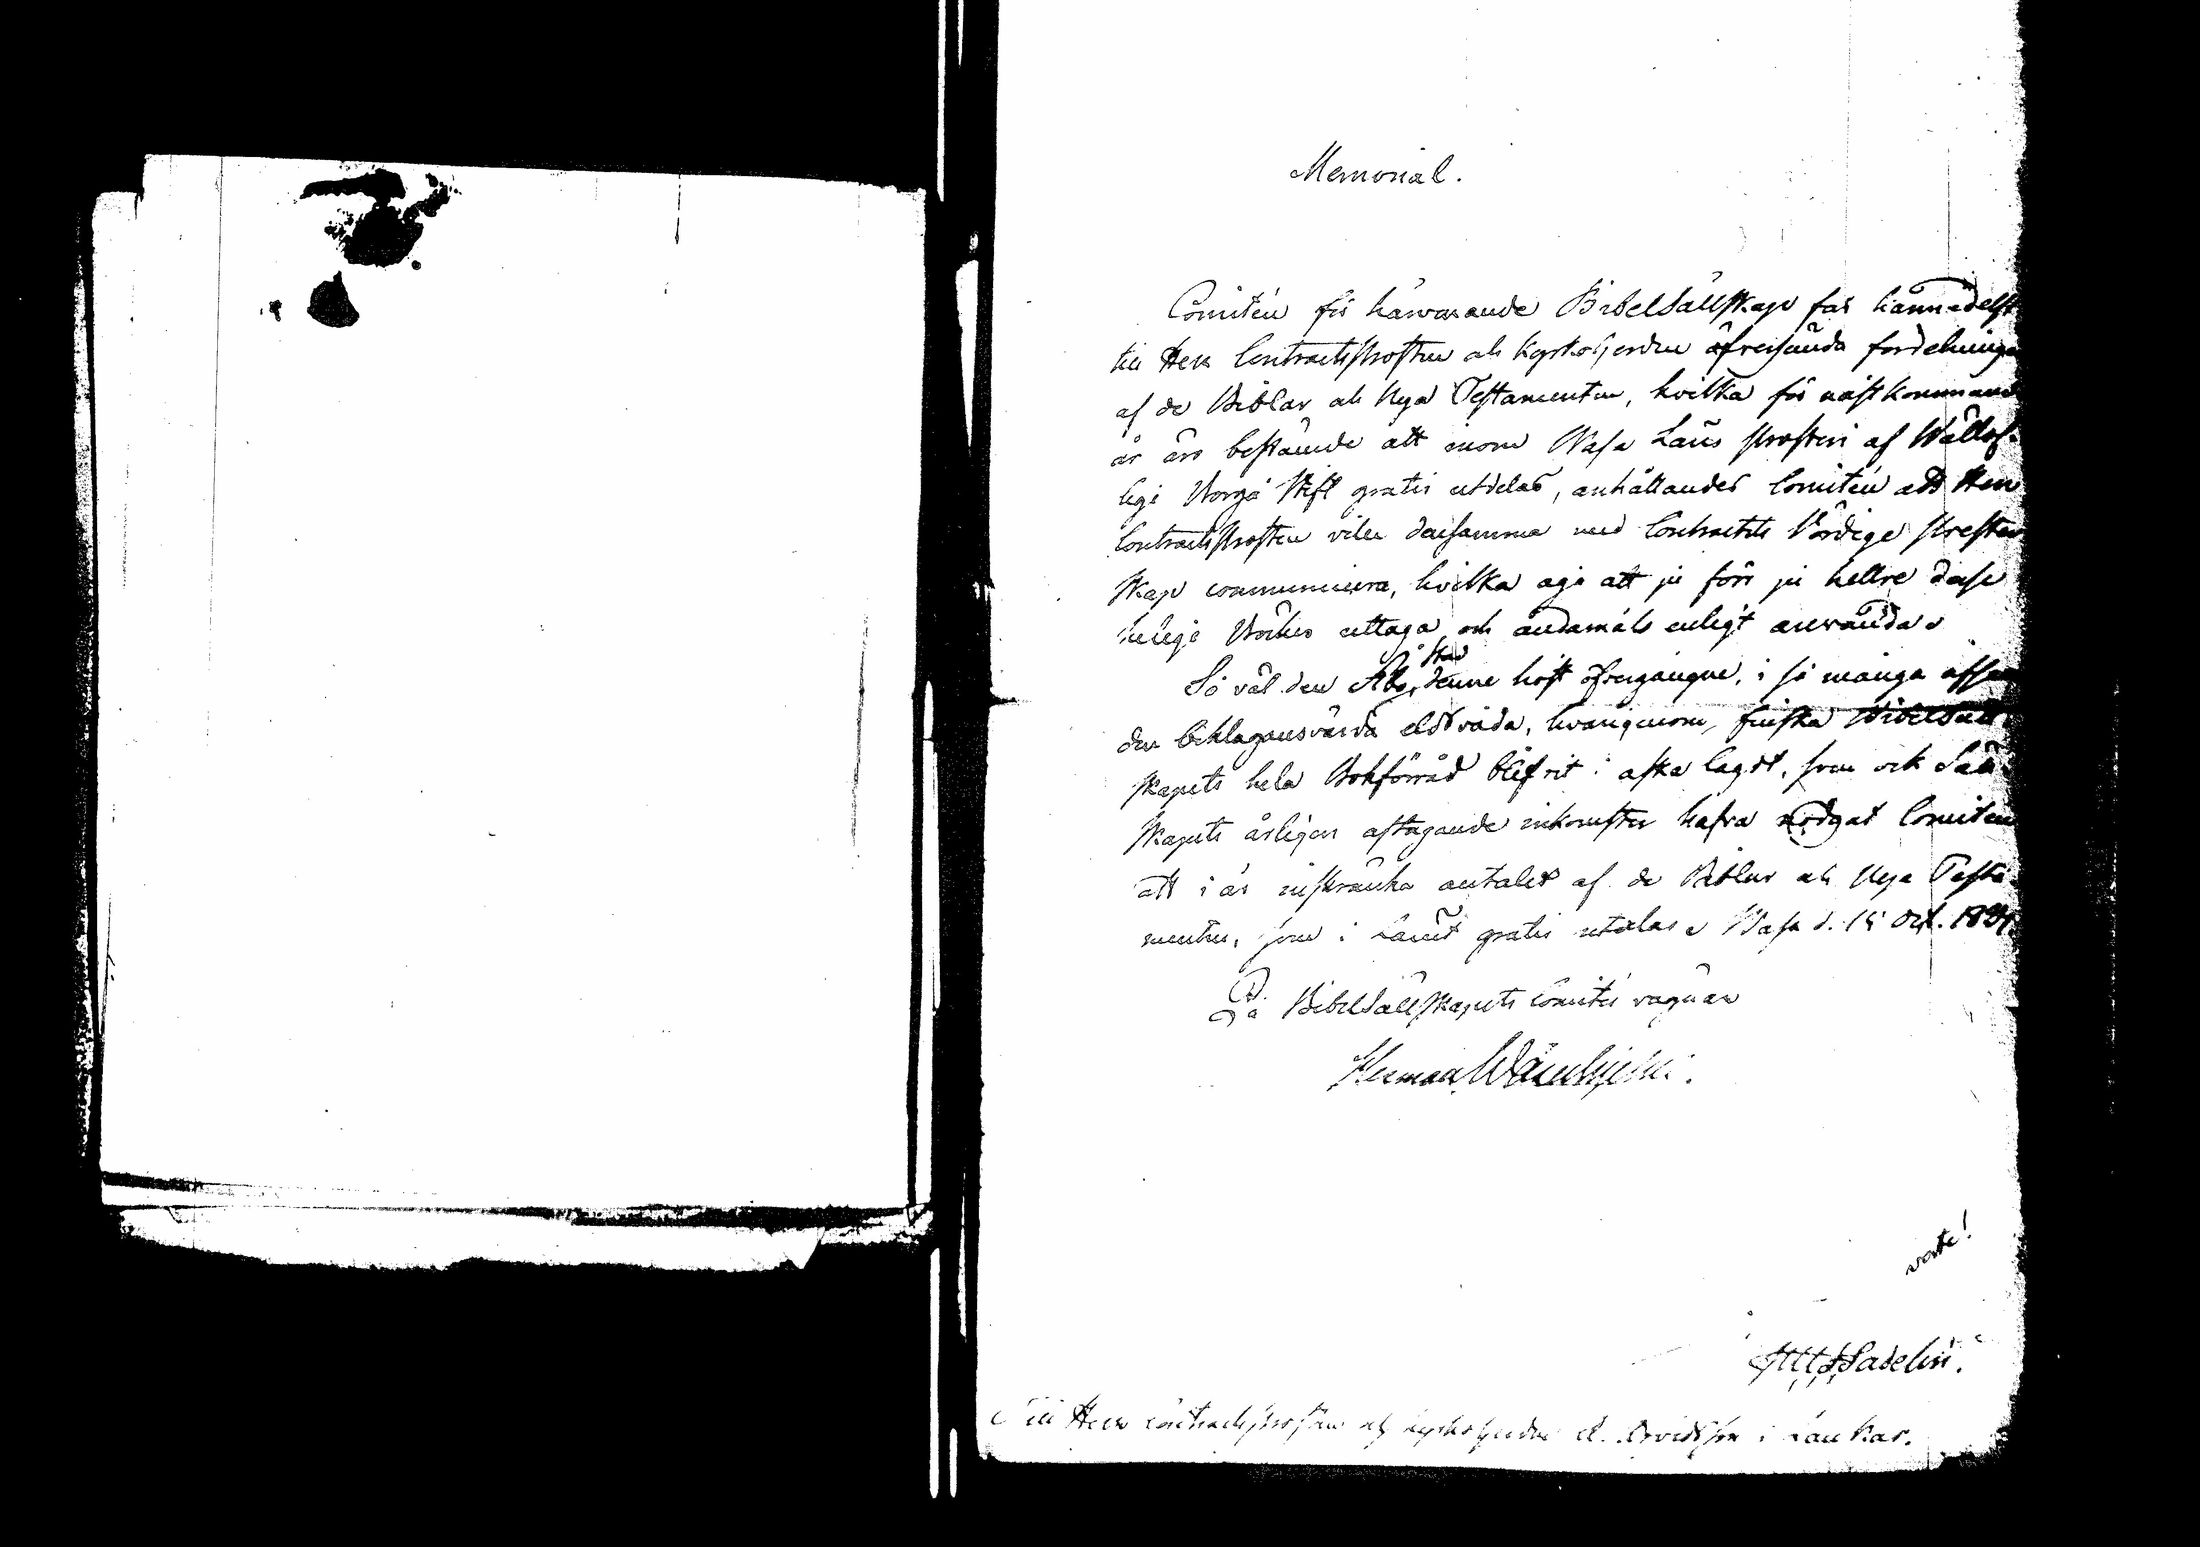 Memorial.
Comitén för härvarande BibelSällskap får härmedelst
till Herr Contractsprosten och Kyrkoherden öfversända fördelninge
af de Biblar och Nya Testamenten, hvilka för nästkommand
år äro bestämde att inom Wasa Läns prosteri af Wällof-
lige Borgå Stift gratis utdelas, anhållandes Comitén att Herr
Contractsprosten ville densamma med Contractets Vördige Prester
skap communicera, hvilka äga att ju förr ju hellre dessa
helige Böcker uttaga och ändamåls enligt använda.
Så väl den Åbo stad denne höst öfvergångne, i så många afse
den beklagansvärda eldsvåda, hvarigenom finska Bibelsäll-
skapets hela Bokförråd blifvit i aska lagdt, som ock Säll-
skapets årligen aftagande inkomster hafva nödgat Comitén
att i år inskränka antalet af de Biblar och Nya Testa-
menten, som i Länet gratis utdelas. Wasa d. 15 Oct. 1827.
På BibelSällskapets Comités vägnar
Herman
verte!
Till Herr Contractsprosten och Kyrkoherden A. Arvidsson i Laukas.